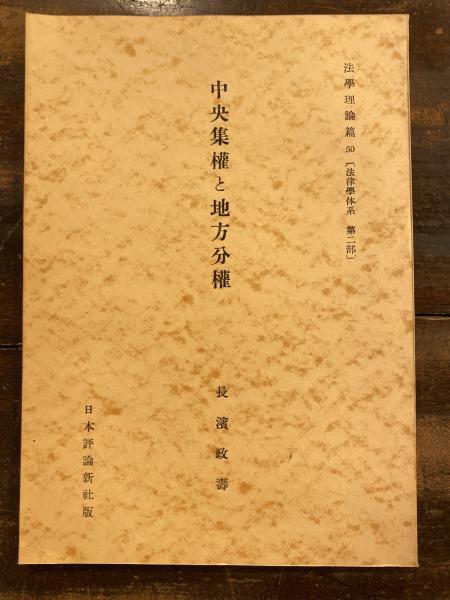 法學理論篇 50 〔法律學体系 第二部〕
中央集權と地方分權
長濱政壽
日本評論新社版